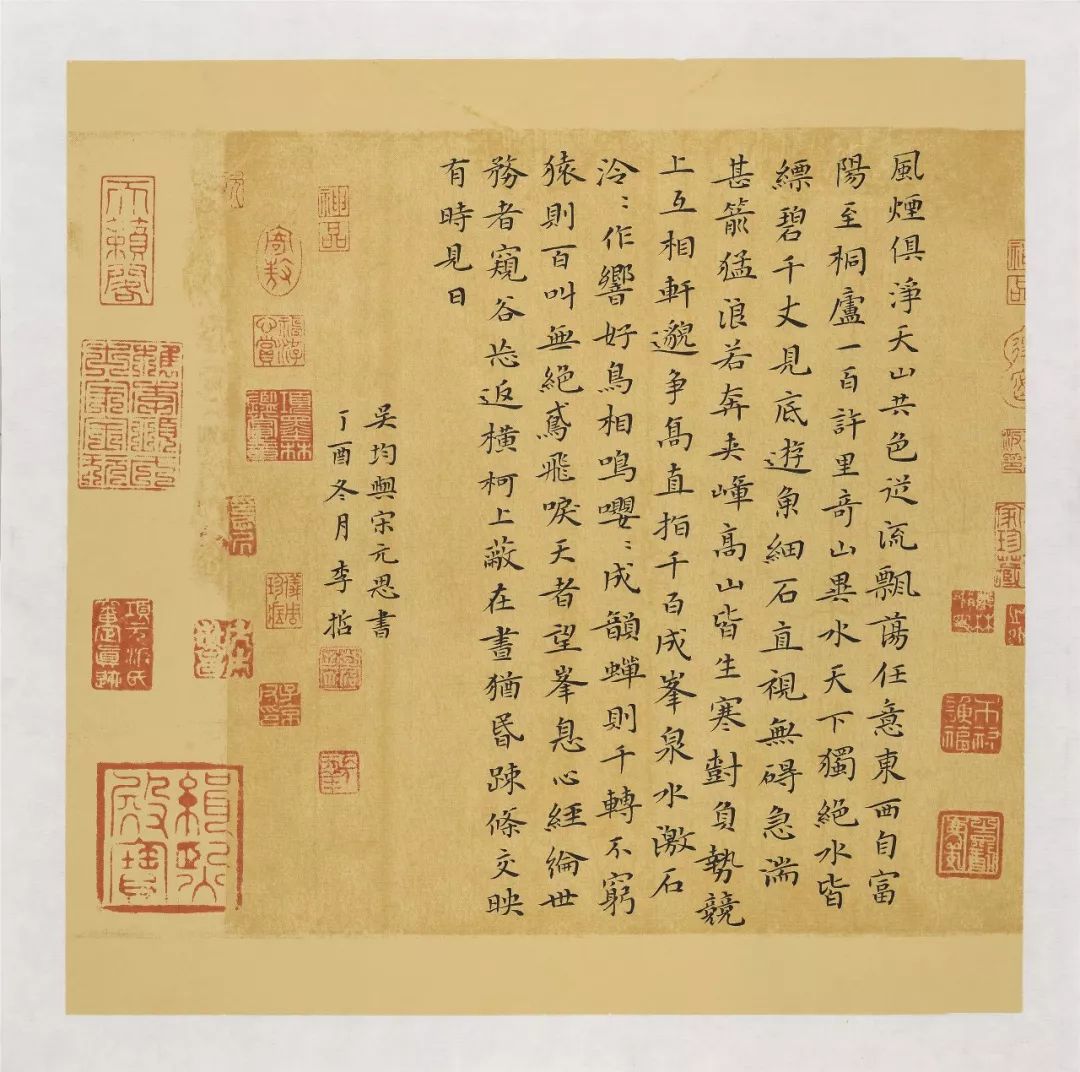 風煙俱淨天山共色從流飄蕩任意東西自富
陽至桐廬一百許里奇山異水天下獨絕水皆
縹碧千丈見底遊魚細石直視無碍急湍
甚箭猛浪若奔夹嶂高山皆生寒樹負勢競
上互相軒邈争高直指千百成峯泉水激石
泠：作響好鳥相鳴嚶：成韻蟬則千轉不窮
猿則百叫無絕鳶飛唳天者望峯息心經綸世
務者窺谷忘返橫柯上蔽在晝猶昏踈條交映
有時見日
吳均與宋元思書
丁酉冬月李哲
神品
天籟閣
緝熙殿寶